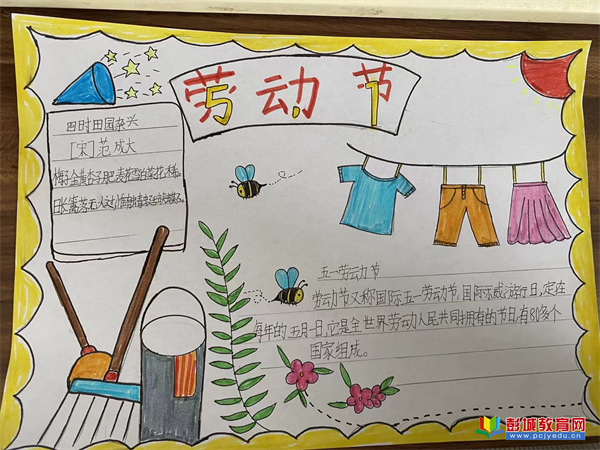 劳动节
5.1
四时田园杂兴
[宋]范成大
梅子金黄杏子肥,麦花雪白菜花稀。
日长篱落无人过,
五一劳动节
劳动节又称国际五一劳动节,国际示威游行日,定在
每年的五月一日,它是全世界劳动人民共同拥有的节日,有80多个
国家组成。
彭城教育网
www.pcjyedu.cn